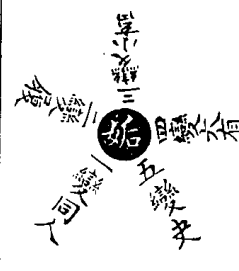 姤
一變同人
二變履
三變小畜
四變大有
五變夬